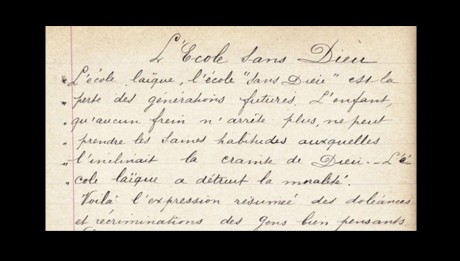 L'Ecole sans Dieu
L'école laïque, l'école "sans Dieu" est la
perte des générations futures. L'enfant,
qu'aucun frein n'arrête plus, ne peut
prendre les saines habitudes auxquelles
l'inclinait la crainte de Dieu. _ L'é
cole laïque a détruit la moralité.
Voilà l'expression résumée des doléances
et récriminations des gens bien pensants